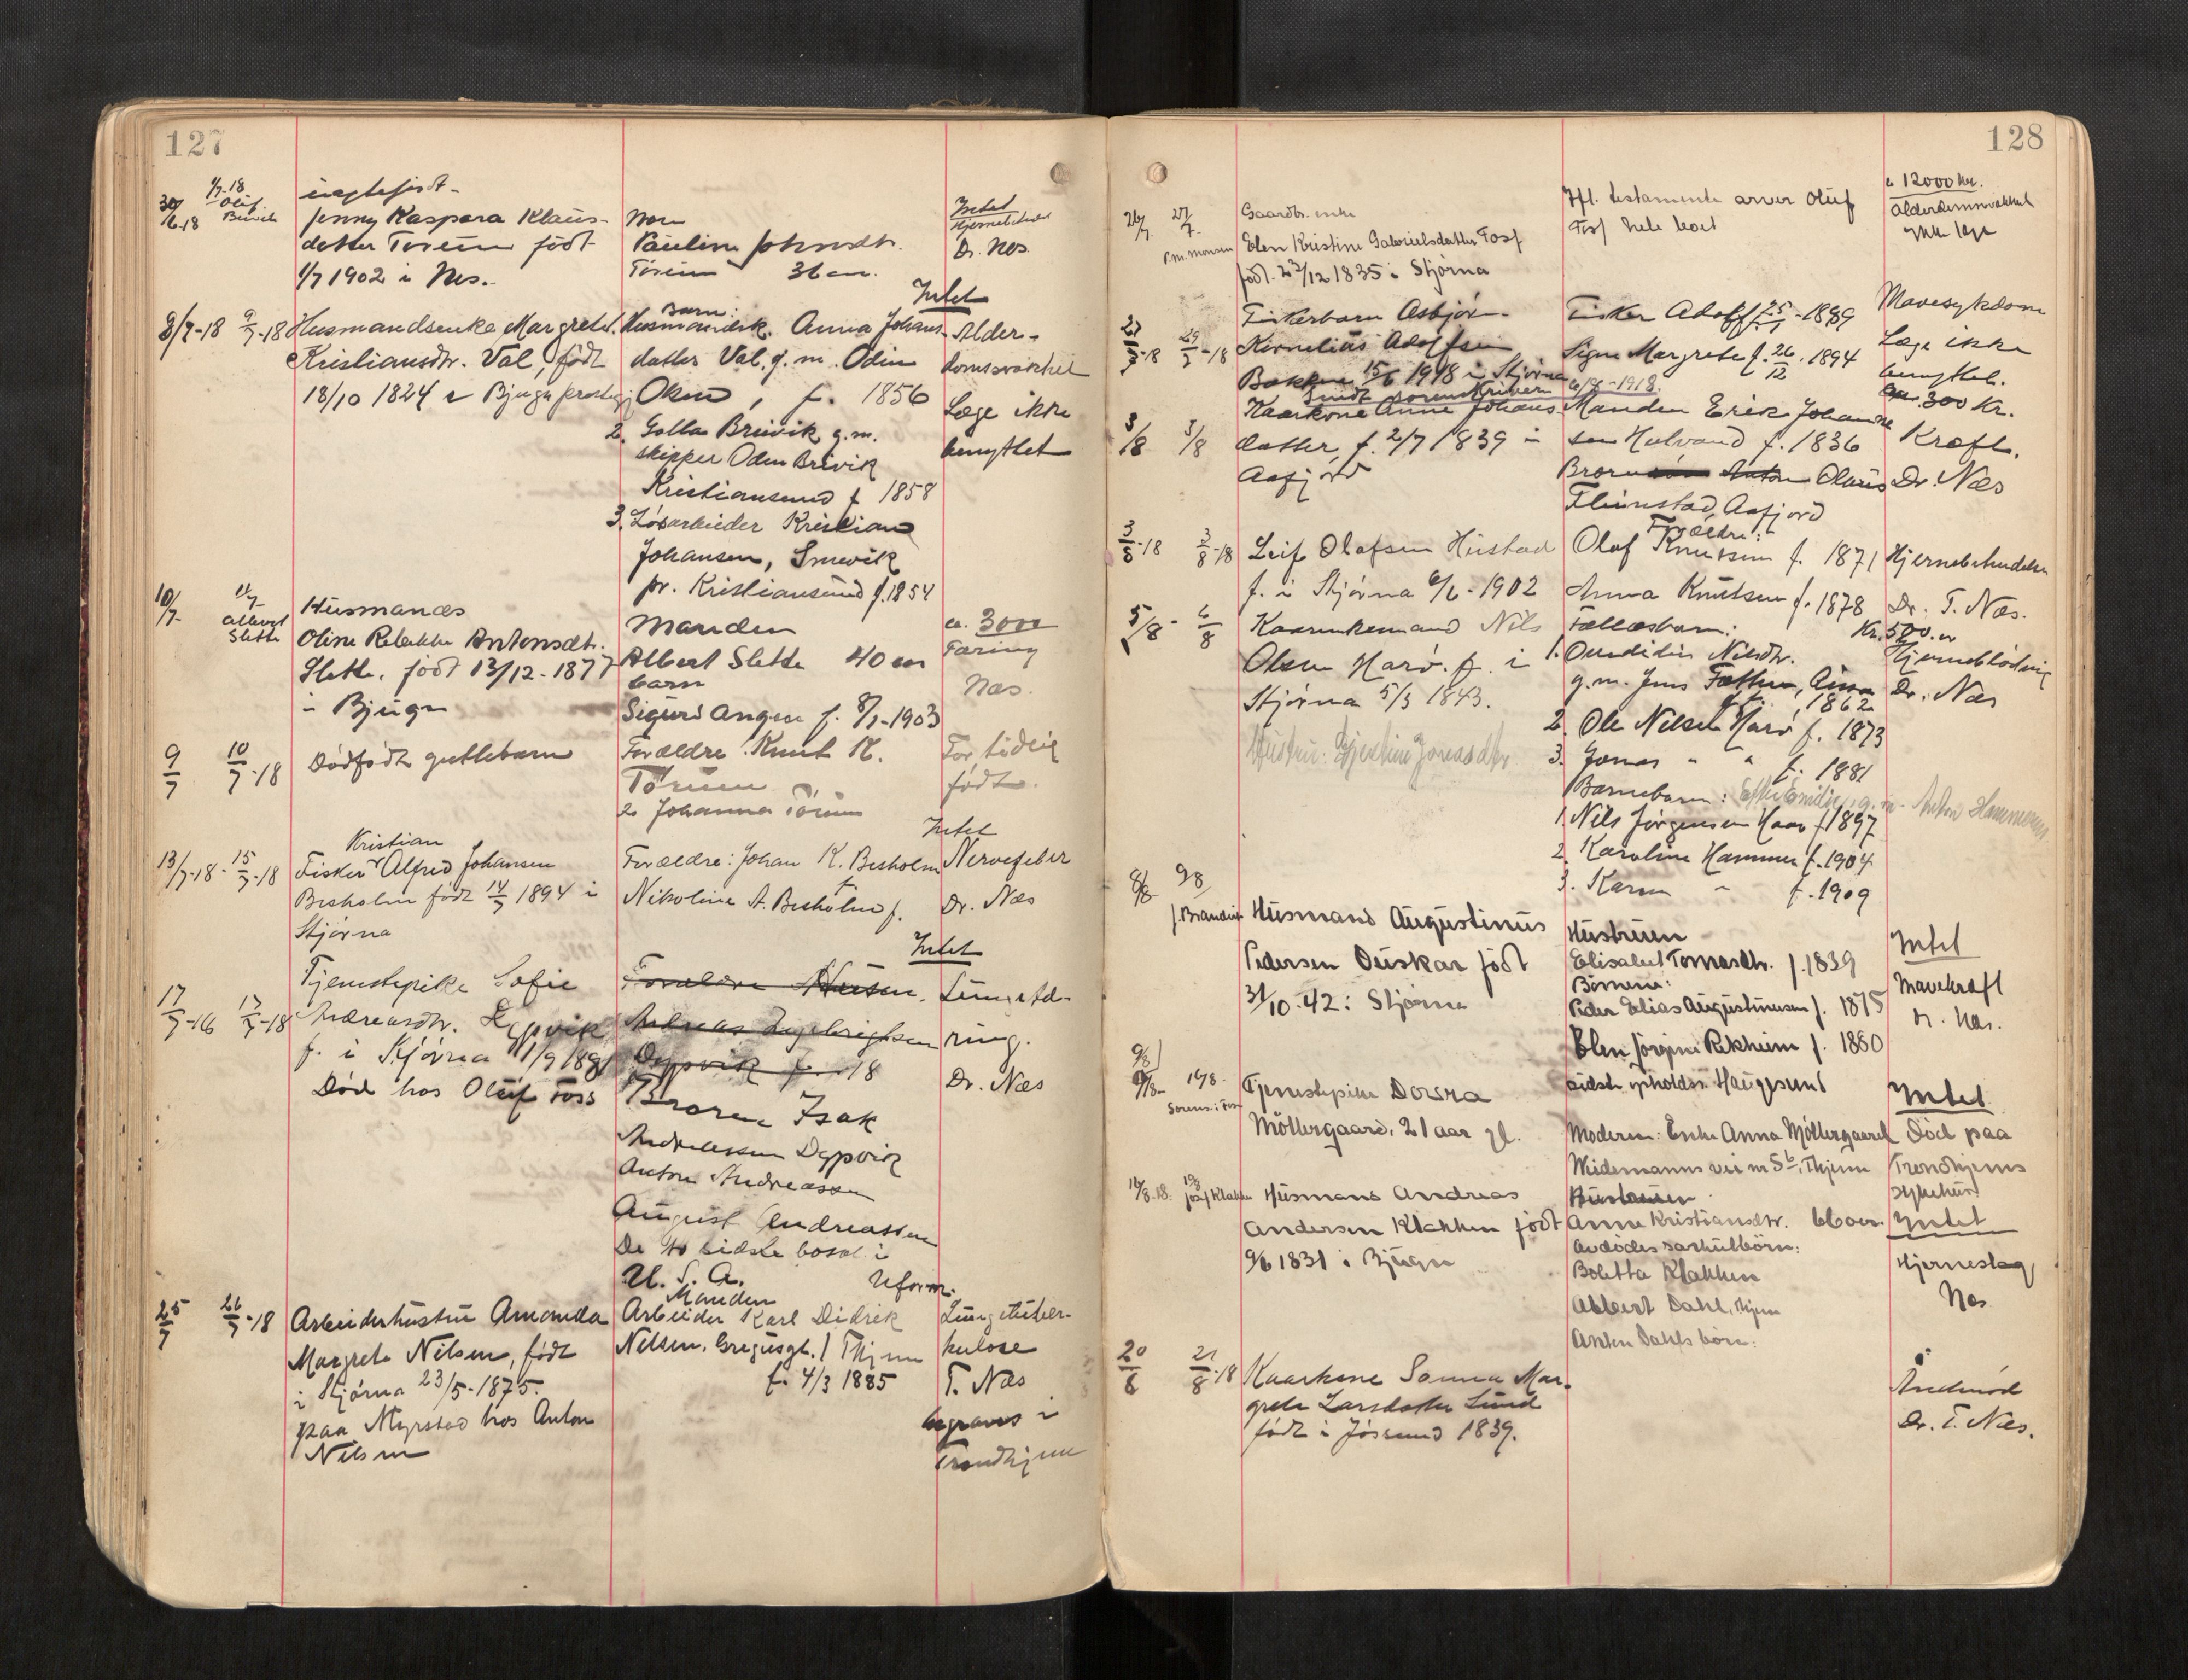 127
30/6.18
1/7-18
Oluf
uegtefødt-
Jenny Kaspara Klaus-
datter Tørum født
1/7 1902 i Nes.
Mor
Pauline Johnsdtr.
Tørum 36 aar.
Intet
Hjernebetendelse
Dr. Næs
8/7-18 9/7-18 Husmandsenke Margrete
Kristiansdtr. Val, født
18/10 1824 i Bjugn prestegj
Barn:
Husmandsk. Anna Johans
datter Val, g. m. Odin
Olsen, f. 1856
2. Golla Brevik g.m.
skipper Odin Brevik
Kristiansund f 1858
3. Løsarbeider Kristian
Johansen,
pr. Kristiansund f. 1854
Intet
Alder-
domssvakhet
Læge ikke
benyttet
10/7- 11/7-
Albert
Slette
Husmands
Oline Rebekka Antonsdtr.
Slette, født 13/12-1877
i Bjugn
Manden
Albert Slette 40 aar
barn
Sigurd Angen f. 8/1-1903
ca. 3000
Tæring
Næs.
9/7 10/7-18 Dødfødt guttebarn
Forældre Knut K.
Tørum
2. Johanna Tørum
For tidlig
født.
13/7-18- 15/7-18
Kristian
Fisker Alfred Johansen
Besholm født 14/7 1894 i
Stjørna
Forældre: Johan K. Besholm
Nikoline A. Besholm f.
Intet
Nervefeber
Dr. Næs
17/7-16 17/7-18
Tjenestepike Sofie
Andreasdtr. Dypvik
f. i Stjørna 11/9 189
Død hos Oluf Foss
Forældre
Andreas Ingebrigtsen
Dypvik f. 18
Broren Isak
Andreassen Dypvik
Anton Andreassen
August Andreassen
De to sidste bosat i
U. S. A.
Intet
Lungetæ-
ring.
Dr. Næs
25/7 26/7-18
Arbeiderhustru Amanda
Margrete Nilsen, født
i Stjørna 23/5-1875.
paa Myrstad hos Anton
Nilsen
Manden
Arbeider Karl Didrik
Nilsen, Gregusgt. 1 Thjem
f. 4/3 1885
Uform.
Lungetuber-
kulose
T. Næs
begraves i
Trondhjem
128
26/7. 27/7.
P.m. Monsen
Gaardbr. enke
Elen Kristine Gabrielsdatter Foss
født 23/12 1835 i Stjørna
Ifl. testamente arver Oluf
Foss hele boet
12000 kr.
Alderdomssvakhet
ikke læge
27/7-18 29/7-18
Fiskerbarn Asbjørn
Kornelius Adolfsen
Bakken 15/6 1918 i Stjørna
Sendt Sorenskriveren 6/8-1918.
Fisker Adolf f 25/1-1889
Signe Margrete f. 26/12. 1894
Mavesykdom
Læge ikke
benyttet.
3/8 3/8
Kaarkone Anne Johans
datter, f. 2/7 1839 i
Aafjord
Manden Erik Johan
sen Halvand f. 1836
Broren Anton Olaus
Flennstad, Aafjord
300 Kr.
Kræft.
Dr. Næs
3/8-18 3/8-18 Leif Olafsen Hustad
f. i Stjørna 6/6-1902
Forældre:
Olaf Knutsen f. 1871
Anna Knutsen f. 1878
Hjernebetendelse
Dr. T. Næs.
5/8- 6/8
Kaarenkemand Nils
Olsen Harø. f. i
Stjørna 5/3 1843.
Hustru: Gjertine Jonasdtr
Fællesbarn:
1. Nilsdtr.
g.m. Jens
1862
2. Ole Nilsen Harø f. 1873
3. Jonas " " f. 1881
Barnebarn: g. m. Anton Hammer
1. Nils Jørgensen Harø f 1897
2. Karoline Hammer f. 1904
3. Karen " f. 1909
Kr. 500.
Hjerneblødning
Dr. Næs
8/8 9/8
Husmand Augustinus
Pedersen Duskar født
31/10.42 i Stjørna
Hustruen
Elisabet Tomasdtr. f. 1839
Børnene:
Peder Elias Augustinusen f. 1875
Elen Jørgine Rekheim f. 1880
sidste opholdss Haugesund
Intet
Mavekræft
Dr. Næs.
9/8
14/8
Tjenestepike Dorra
Möllergaard, 21 aar gl.
Moderen: Enke Anna Möllergaard
Weidemanns vei nr 5b, Thjem
Intet
Død paa
Trondhjems
sykehus
16/8.18.
Husmand Andreas
Andersen Klakken født
9/6 1831 i Bjugn
Hustruen
Anne Kristiansdtr. 66 aar.
Avdødes særkulbørn:
Boletta Klakken
Albert Dahl, Thjem
Anton Dahls børn:
Intet
Hjerneslag
Næs
20/8 21/8-18 Kaarkone Sanna Mar-
grete Larsdatter Lund
født i Jøssund 1839.
Åndenød
Dr. T. Næs.